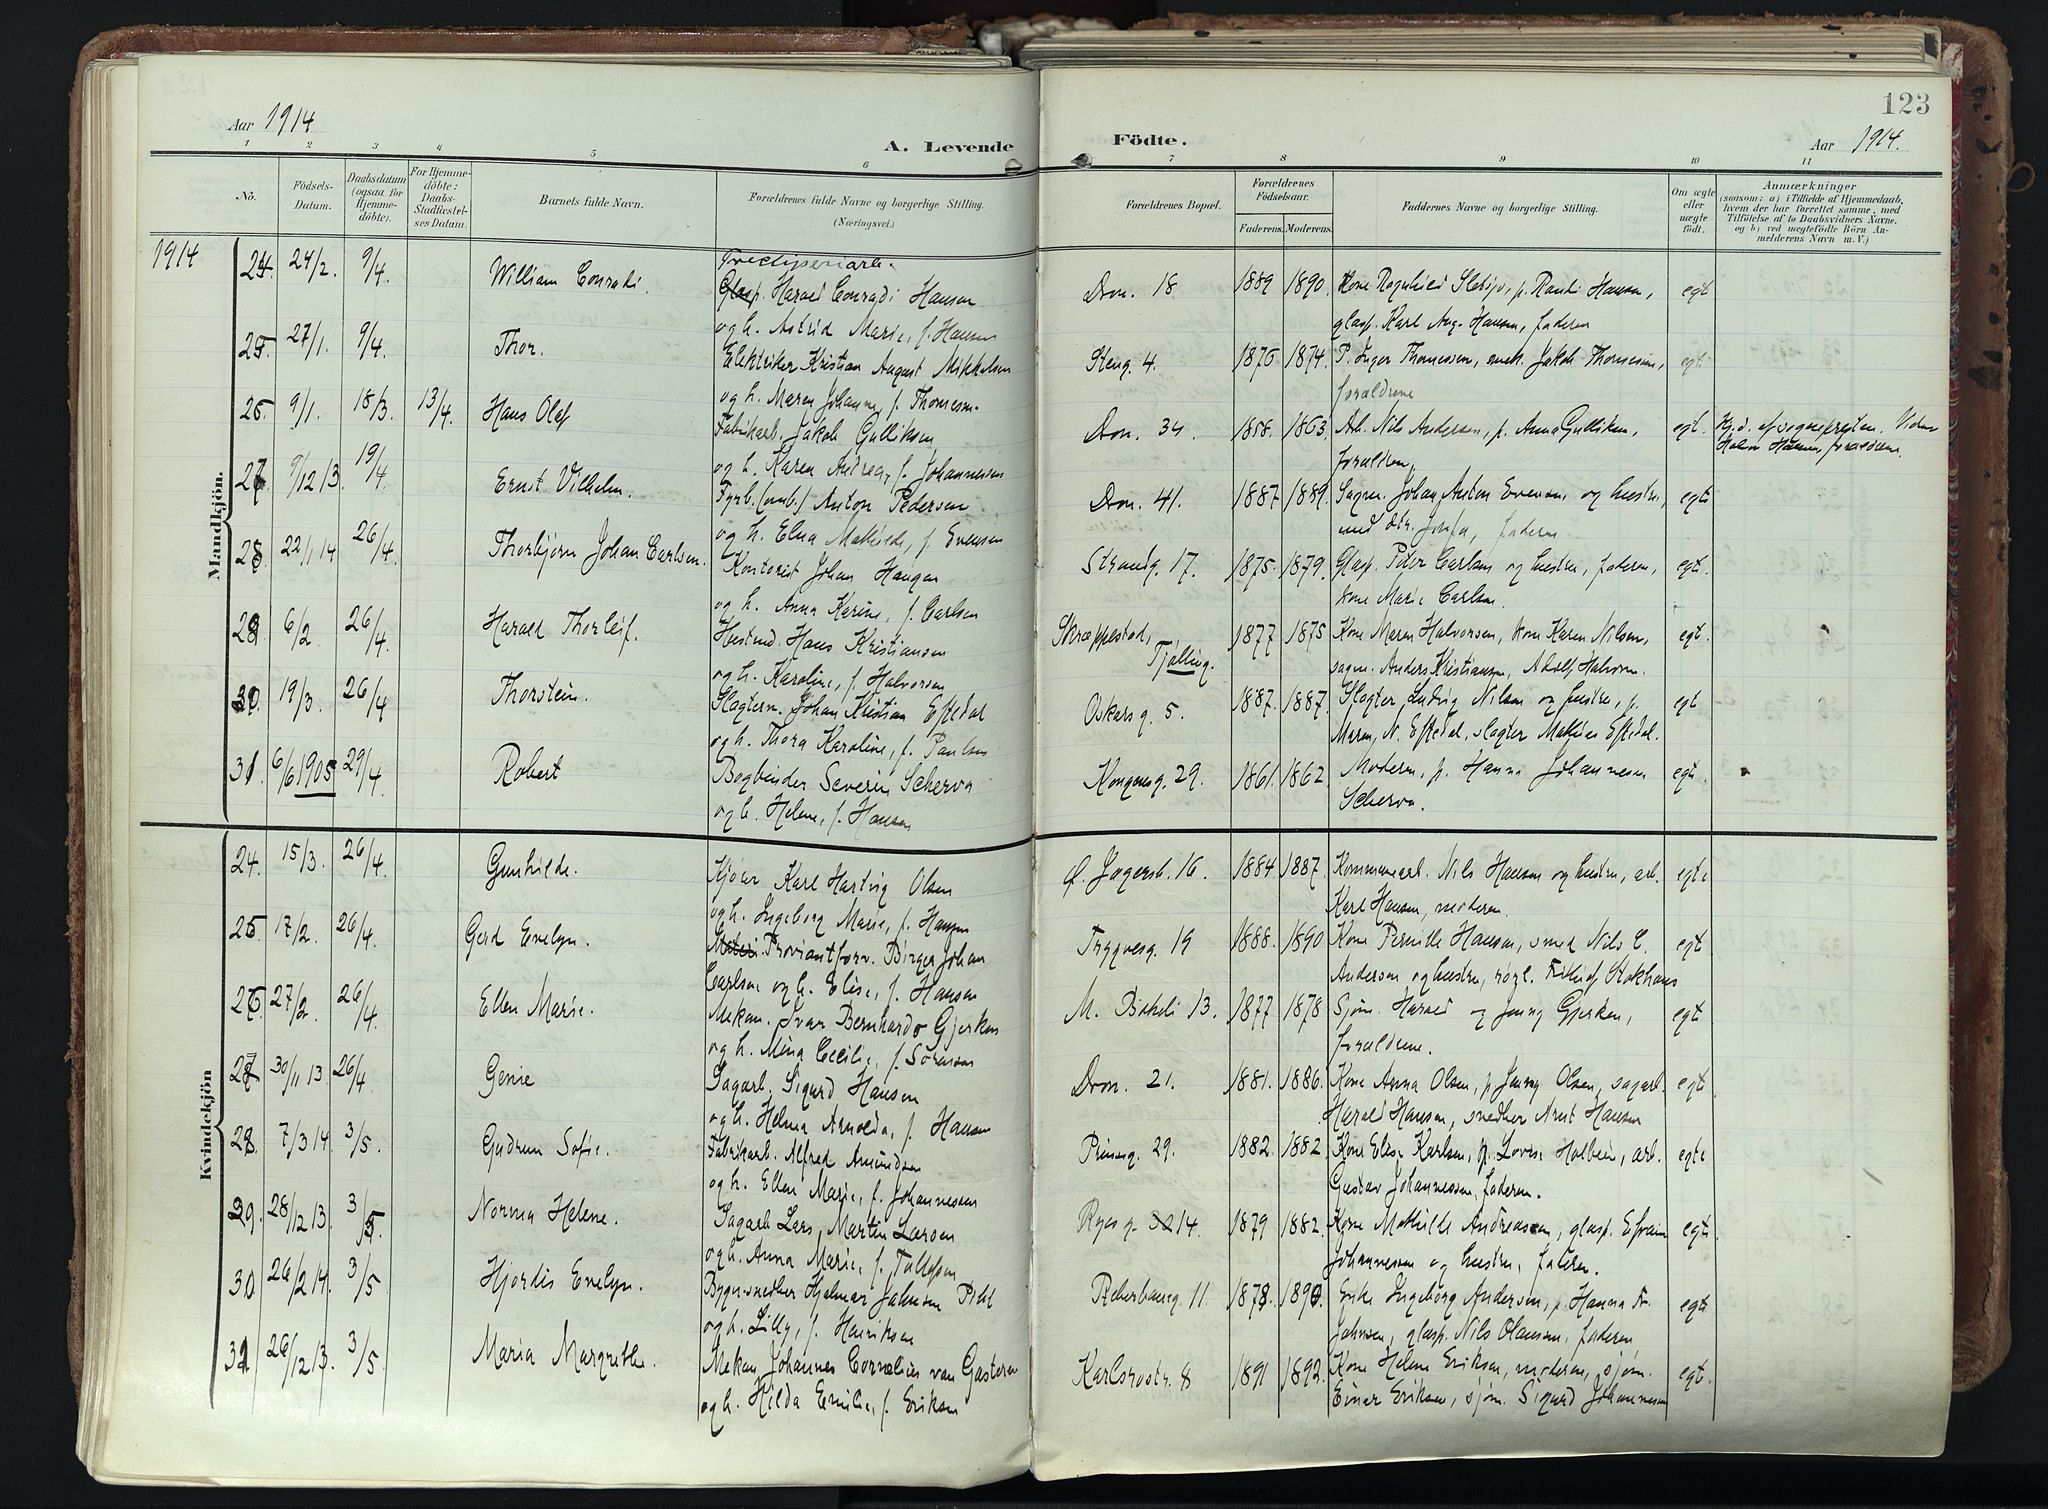 123
Aar 1914
A. Levende Födte.
Aar 1914.
1 2 3 4 5 6 7 8 9 10 11
No.
Födsels-Datum.
Daabsdatum (ogsaa for Hjemme-döbte).
For Hjemme-döbte: Daabs-Stadfæstel-ses Datum.
Barnets fulde Navn.
Forældrenes fulde Navne og borgerlige Stilling.
(Næringsvei.)
Forældrenes Bopæl.
Forældrenes Födselsaar.
Faderens. Moderens.
Faddernes Navne og borgerlige Stilling.
Om ægte eller uægte födt.
Anmærkninger
(saasom: a) i Tilfælde af Hjemmedaab,
hvem der har forrettet samme, med
Tilföielse af to Daabsvidners Navne.
og b) ved uægtefödte Börn An-
melderens Navn m. V.)
1914
Mandkjön.
24. 24/2. 9/4. William Conradi. Harald Conradi Hansen
og h. Astrid Marie, f. Hansen
Dron. 18 1889 1890. Kone Ragnhild p. Randi Hansen, egt
glasp. Karl Aug. Hansen, faderen
25. 27/1. 9/4. Thor. Elektriker Kristian August Mikkelsen
og h. Maren Johanne, f. Thomesen.
Steng. 4. 1876 1874. P. Inger Thomessen, mek. Jakob Thomessen, egt
forældrene
26. 9/1. 18/3. 13/4. Hans Olaf Fabrikarb. Jakob Gulliksen
og h. Karen Andrea, f. Johannessen
Dron. 34. 1858. 1863. Arb. Nils Andersen, p. Anna Gulliksen, egt. Hj.d. af sognepresten.
forældren,
27 9/12 13. 19/4. Ernst Vilhelm. Fyrb. (omb.) Anton Pedersen
og h. Elna Mathilde, f. Evensen
Dron. 41. 1887 1889. Sagm. Johan Anton Evensen og hustru, egt
med dtr. faderen
28 22/1 14 26/4. Thorbjørn Johan Carlsen. Kontorist Johan Haugen
og h. Anna Karine, f. Carlsen
Strandg. 17. 1875. 1879. Glasp. Peter Carlsen og hustru, faderen, egt.
kone Marie Carlsen.
29 6/2 26/4. Harald Thorleif. Hans Kristiansen
og h. Karoline, f. Halvorsen
Skreppestad, Tjølling. 1877 1875 Kone Maren Halvorsen, kone Karen Nilsen, egt.
sagm. Anders Kristiansen, Adolf Halvorsen.
30. 19/3. 26/4 Thorstein. Slagterm. Johan Kristian Eftedal
og h. Thora Karoline, f. Paulsen
Oskarsg. 5. 1887. 1887. Slagter Ludvig Nilsen og hustru, p. egt
Maren N. Eftedal, slagter Mathias Eftedal.
31. 6/6 1905 29/4. Robert Bogbinder Severin Scherva
og h. Helene, f. Hansen
Kongensg. 29. 1861. 1862 Moderen, p. Hanna Johannesen egt.
Scherva.
Kvindekjön
24. 15/3. 26/4. Gunhilde. Kjører Karl Hartvig Olsen
og h. Ingeborg Marie, f. Hansen
Ø. Jegersb. 16. 1884 1887. Kommunearb. Nils Hansen og hustru, arb. egt.
Karl Hansen, moderen.
25 17/2. 26/4. Gerd Evelyn. Proviantforv. Birger Johan
Carlsen og h. Elise, f. Hansen
Trygvesg. 19 1888. 1890 Kone Pernille Hansen, smed Nils C. egt
Andersen og hustru, Stokhaus
26. 27/2. 26/4. Ellen Marie. Mekan. Ivar Bernhardo Gjerken
og h. Mina Cecilie, f. Sørensen
M. Bøkeli 13. 1877 1878 Sjøm. Harald og Jenny Gjerken, egt
forældrene.
27 30/11 13. 26/4. Genie Sagarb. Sigurd Hansen
og h. Helma Arnolda, f. Hansen
Dron. 21. 1881. 1886. Kone Anna Olsen, p. Jenny Olsen, sagarb. egt
Harald Hansen, snedker Arnt Hansen
28. 7/3 14. 3/5. Gudrun Sofie. Fabrikarb. Alfred Amundsen
og h. Ellen Marie, f. Johannessen
Prinseg. 29. 1882. 1882 Kone Elise Karlsen, p. Lovise Holbein, arb. egt.
Gustav Johannessen, faderen.
29. 28/12 13. 3/5. Norma Helene. Sagarb. Lars Martin Larsen
og h. Anna Marie, f. Tollefsen
Ryesg. 14. 1879 1882. Kone Mathilde Andreassen, glasp. Efraim egt.
Johannessen og hustru, faderen.
30 26/2 14. 3/5 Hjordis Evelyn. Bygn.snedker Hjalmar Johnsen
og h. Lilly, f. Henriksen
11. 1878. 1890. Enke Ingeborg Andersen, p. Hanna egt
Johnsen, glasp. Nils Olausen, faderen
31 26/12 13. 3/5 Maria Margrethe. Mekan. Johannes Cornelius van Gasteren
og h. Hilda Emilie, f. Eriksen
Karlsrostr. 8 1891 1892. Kone Helene Eriksen, moderen, sjøm. egt.
Einar Eriksen, sjøm. Sigurd Johannesen